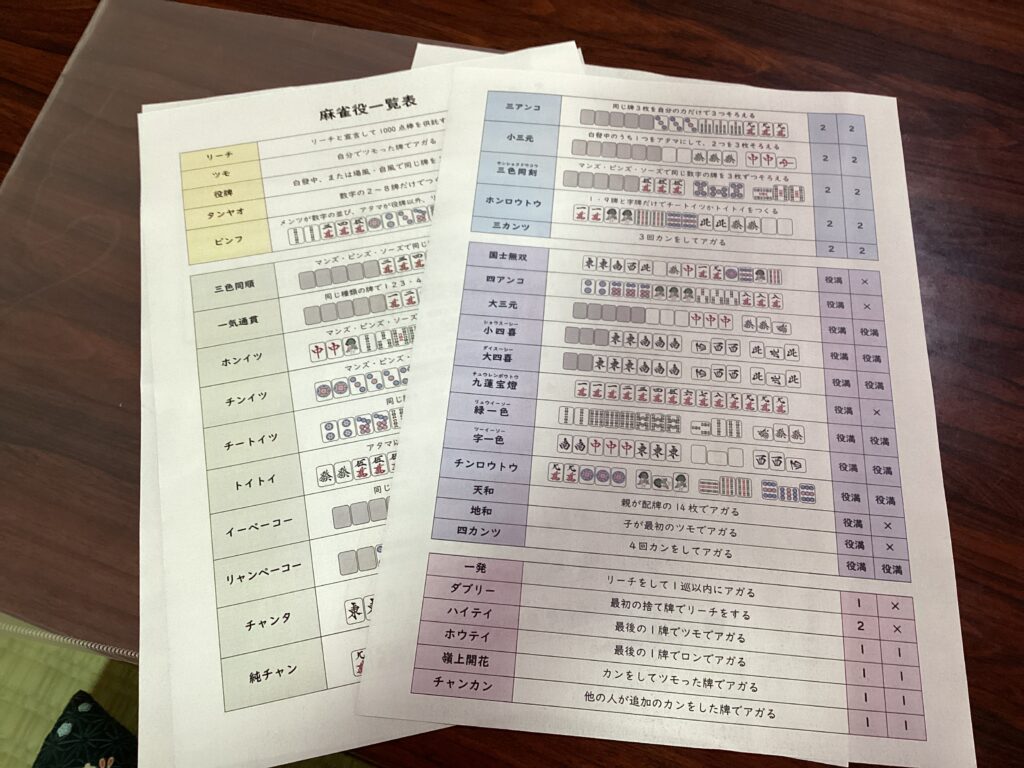 麻雀役一覧表
リーチ
リーチと宣言して1000点棒を供託す
ツモ
自分でツモった牌でアガる
役牌
白發中、または場風・自風で同じ牌を
タンヤオ
数字の2～8牌だけでつ
ピンフ
メンツが数字の並び、アタマが役牌以外、
三色同順
マンズ・ピンズ・ソーズで同じ
一気通貫
同じ種類の牌で123・4
ホンイツ
マンズ・ピンズ・ソーズ
チンイツ
マンズ・ピンズ・
チートイツ
同じ
トイトイ
同じ
アタマに
イーペーコー
同じ
リャンペーコー
チャンタ
純チャン
三アンコ
同じ牌3枚を自分の力だけで3つそろえる
2 2
小三元
白發中のうち1つをアタマにして、2つを3枚そろえる
2 2
サンショクドウコウ
三色同刻
マンズ・ピンズ・ソーズで同じ数字の牌を3枚ずつそろえる
2 2
ホンロウトウ
1・9牌と字牌だけでチートイツかトイトイをつくる
2 2
三カンツ
3回カンをしてアガる
2 2
国士無双
役満 ×
四アンコ
役満 ×
大三元
役満 役満
ショウスーシー
小四喜
役満 役満
ダイスーシー
大四喜
役満 役満
チュウレンポウトウ
九蓮宝燈
役満 ×
リュウイーソー
緑一色
役満 役満
ツーイーソー
字一色
役満 役満
チンロウトウ
役満 役満
天和
親が配牌の14枚でアガる
役満 ×
地和
子が最初のツモでアガる
役満 ×
四カンツ
4回カンをしてアガる
役満 役満
一発
リーチをして1巡以内にアガる
1 ×
ダブリー
最初の捨て牌でリーチをする
2 ×
ハイテイ
最後の1牌でツモでアガる
1 1
ホウテイ
最後の1牌でロンでアガる
1 1
嶺上開花
カンをしてツモった牌でアガる
1 1
チャンカン
他の人が追加のカンをした牌でアガる
1 1